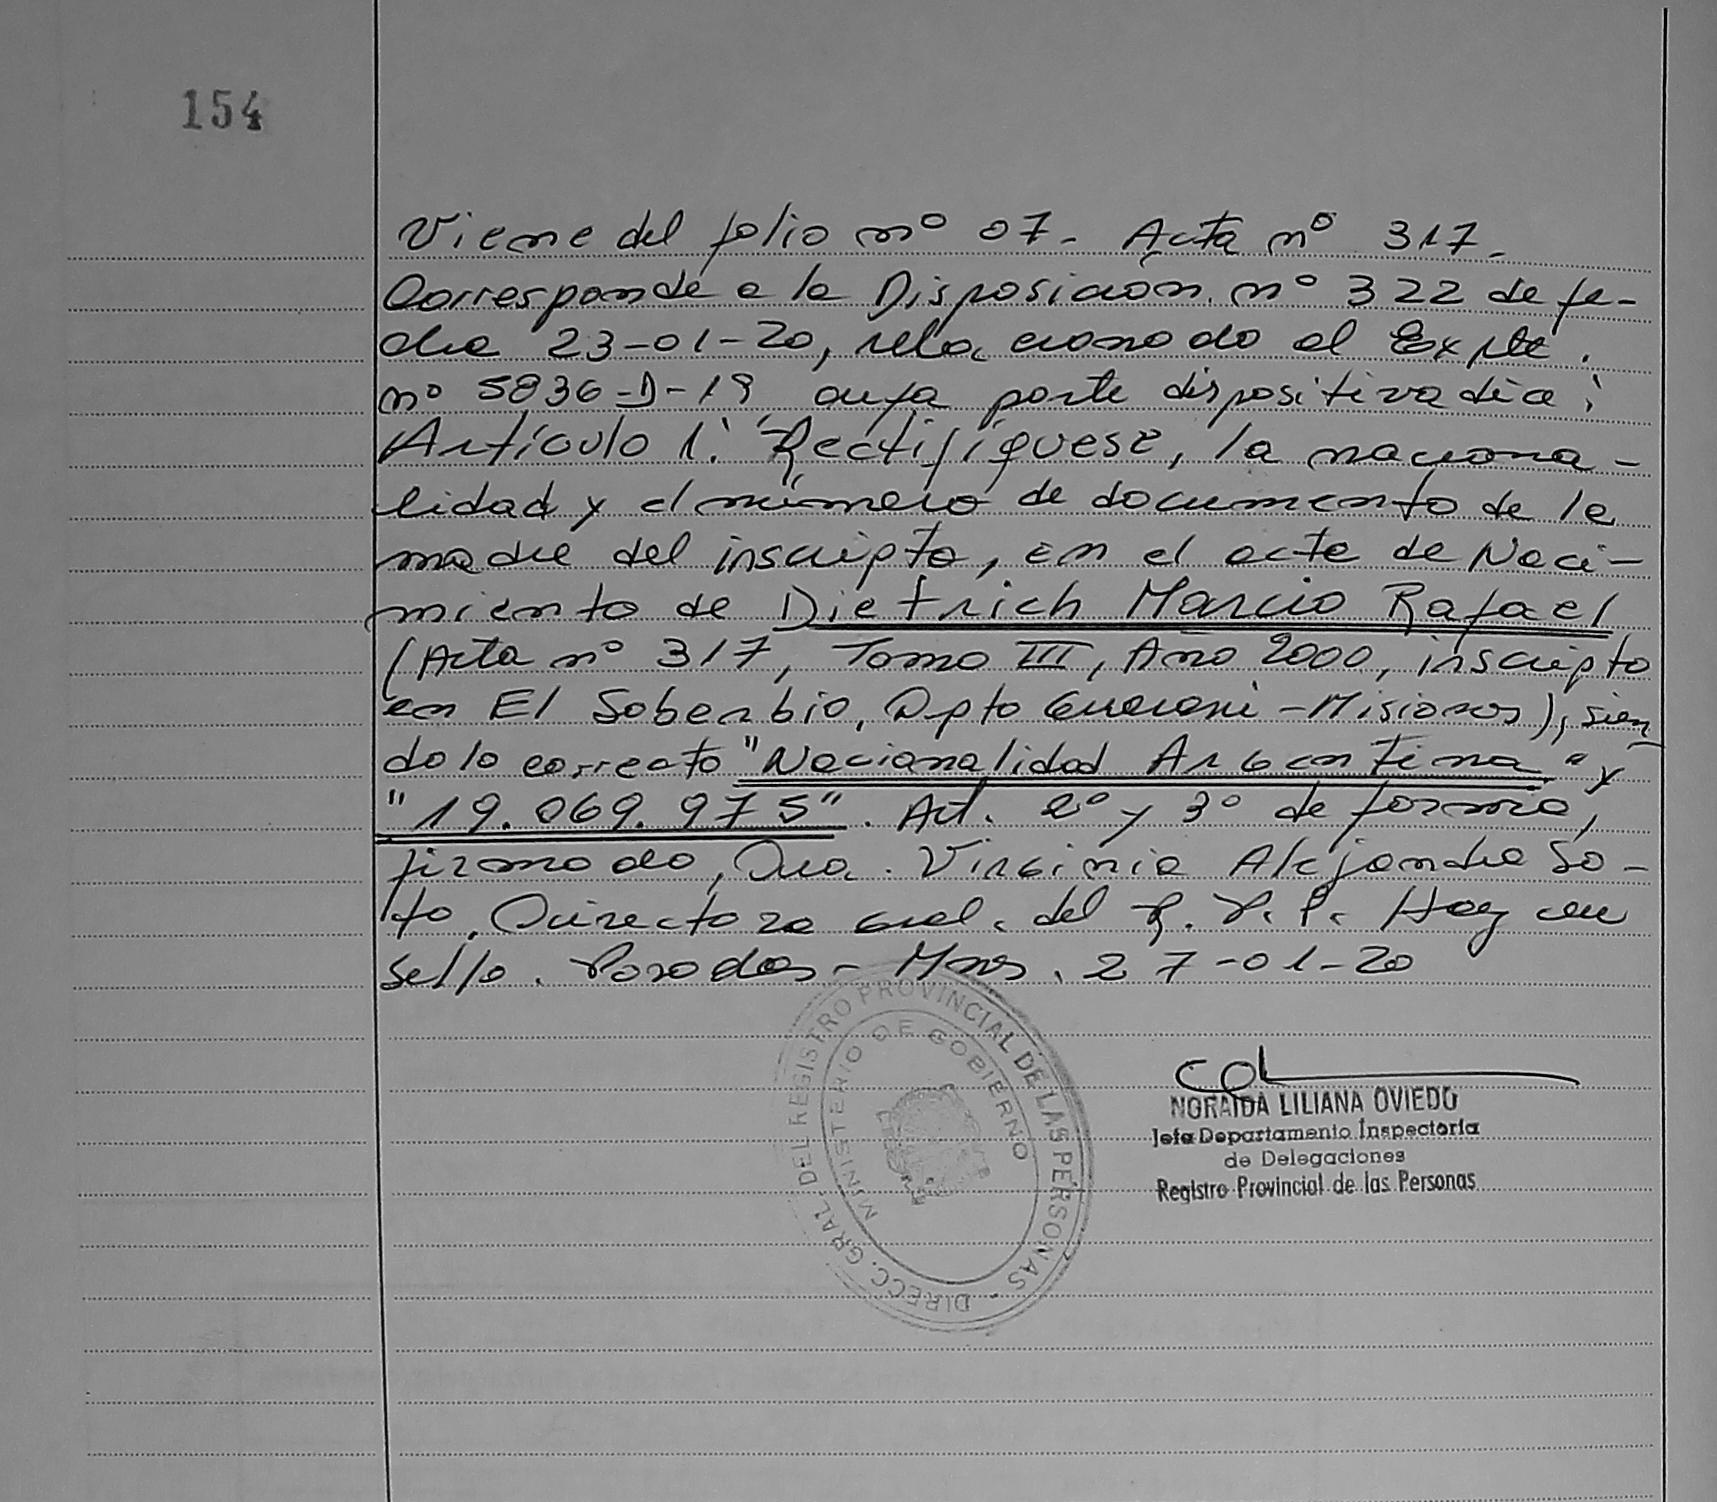 154
Viene del folio nº 07- Acta nº 317.
Corresponde a la Disposición nº 322 de fe-
cha 23-01-20, relacionado al Expte.
nº 5836-D-19 cuya parte dispositiva dice:
Artículo 1: Rectifíquese, la naciona-
lidad y el número de documento de la
madre del inscripto, en el acta de Naci-
miento de Dietrich Marcio Rafael
(Acta nº 317, Tomo III, Año 2000, inscripto
en El Soberbio, Dpto Guaraní - Misiones), sien
do lo correcto "Nacionalidad Argentina" y
"19.069.975". Art. 2º y 3º de forma,
firmado, Dra. Virginia Alejandra So-
to, Directora Gral. del R. P. P. Hay un
sello. Posadas - Mnes. 27-01-20
DIRECC. GRAL. DEL REGISTRO PROVINCIAL DE LAS PERSONAS
MINISTERIO DE GOBIERNO
NORAIDA LILIANA OVIEDO
Jefa Departamento Inspectoría
de Delegaciones
Registro Provincial de las Personas